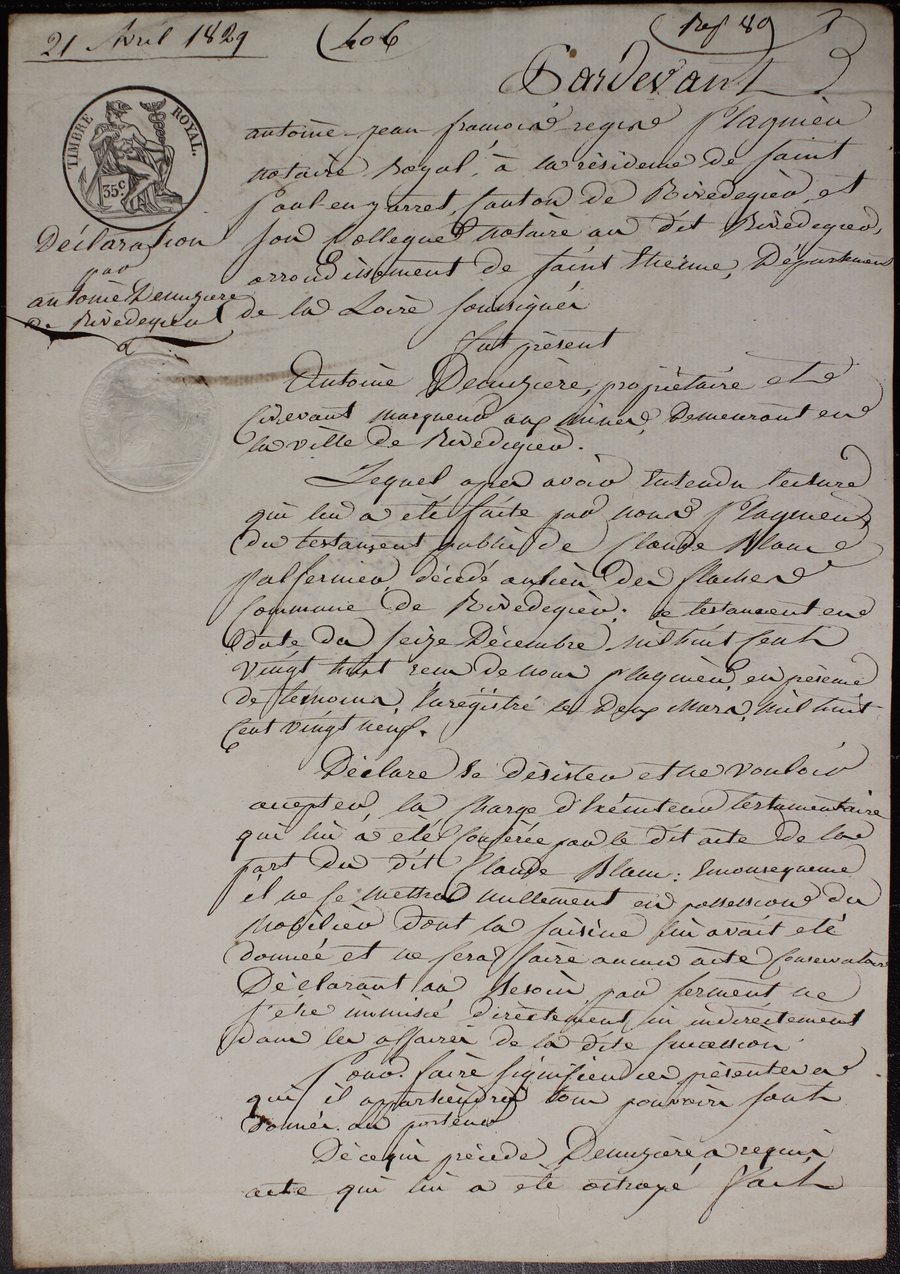 21 Avril 1829
406
Rep 89
Pardevant
TIMBRE ROYAL.
35c.
Déclaration
par
antoine Denuzière
de Rivedegier
antoine jean françois regis Plagnieu
notaire Royal, à la résidence de saint
Paul-en-jarret, Canton de Rivedegier, et
son Collegue notaire au dit Rivedegier,
arrondissement de saint Etienne, Département
de la Loire soussignés
fut présent
Antoine Denuzière, propriétaire et
cidevant marqueur aux mines, Demeurant en
la ville de Rivedegier.
Lequel apres avoir Entendu lecture
qui lui a été faite par nous Plagnieu
du testament public de Claude Blanc
Palfernier, décédé au lieu des flaches
Commune de Rivedegier, ce testament en
date du seize Décembre mil huit Cent
vingt huit recu de nous Plagnieu, en présence
de temoins, Enrégistré le Deux Mars, mil huit
Cent vingt neuf.
Déclare se désister et ne vouloir
accepter la Charge d'Exécuteur testamentaire
qui lui à été Conférée par le dit acte de la
part du dit Claude Blanc: Enconsequence
il ne se mettra nullement en possession du
mobilier dont la saisine lui avait été
donnée et ne fera faire aucun acte Conservatoire
Déclarant au besoin par serment ne
s'être immiscé directement ni indirectement
dans les affaires de la dite succession.
Pour faire signifier ces présentes a
qui il appartiendra tous pouvoirs sont
donnés au porteur
De ce qui précede Denuzière a requis
acte qui lui a été octroyé fait